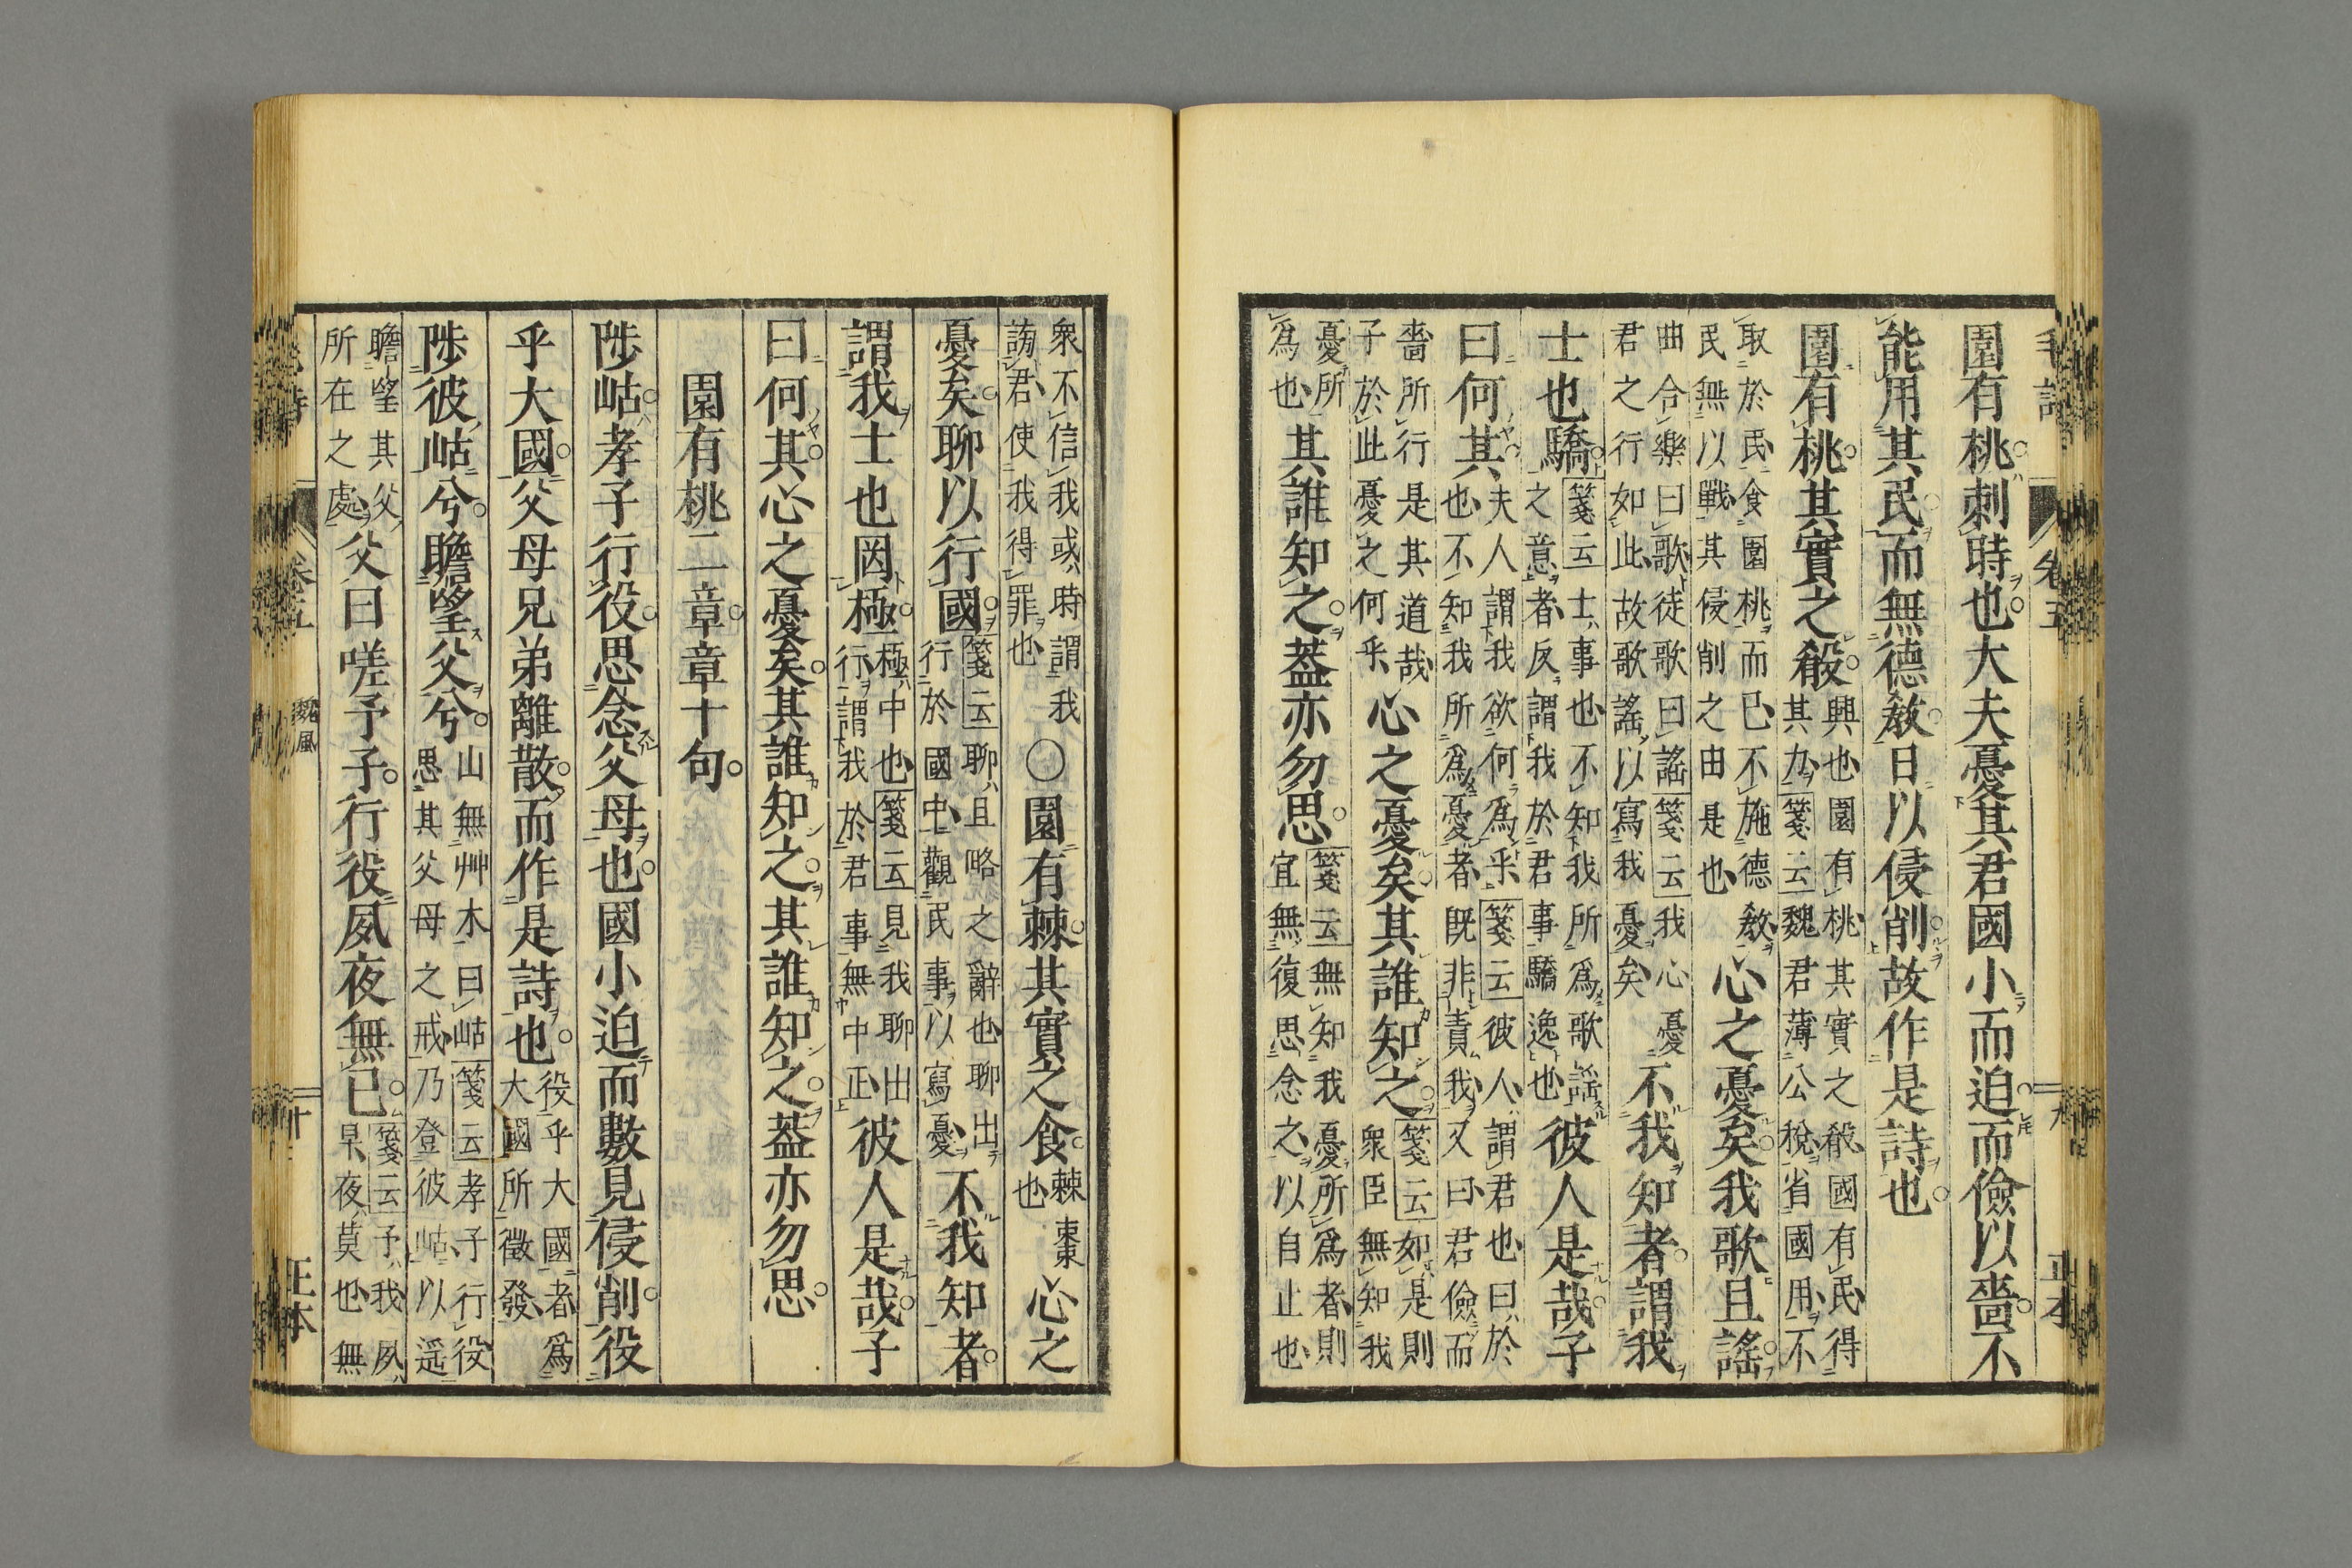 園有桃刺時也大夫憂其君國小而迫而儉以嗇不
能用其民而無德敎日以侵削故作是詩也
園有桃其實之殽興也園有桃其實之殽國有民得其力箋云魏君薄公稅省國用不
取於民食園桃而已不施德敎民無以戰其侵削之由是也心之憂矣我歌且謠
曲合樂曰歌徒歌曰謠箋云我心憂君之行如此故歌謠以寫我憂矣不我知者謂我
士也驕箋云士事也不知我所爲歌謠之意者反謂我於君事驕逸也彼人是哉子
曰何其夫人謂我欲何爲乎箋云彼人謂君也曰於也不知我所爲憂者旣非責我又曰君儉而
嗇所行是其道哉子於此憂之何乎心之憂矣其誰知之箋云如是則衆臣無知我
憂所爲也其誰知之蓋亦勿思箋云無知我憂所爲者則宜無復思念之以自止也
衆不信我或時謂我謗君使我得罪也○園有棘其實之食棘棗也心之
憂矣聊以行國箋云聊且略之辭也聊出行於國中觀民事以寫憂不我知者
謂我士也罔極極中也箋云見我聊出行謂我於君事無中正彼人是哉子
曰何其心之憂矣其誰知之其誰知之蓋亦勿思
園有桃二章章十句
陟岵孝子行役思念父母也國小迫而數見侵削役
乎大國父母兄弟離散而作是詩也役乎大國者爲大國所徵發
陟彼岵兮瞻望父兮山無艸木曰岵箋云孝子行役思其父母之戒乃登彼岵以遥
瞻望其父所在之處父曰嗟予子行役夙夜無已箋云予我夙早夜莫也無
毛詩 卷五 九 正本
卷五 魏風 十 正本